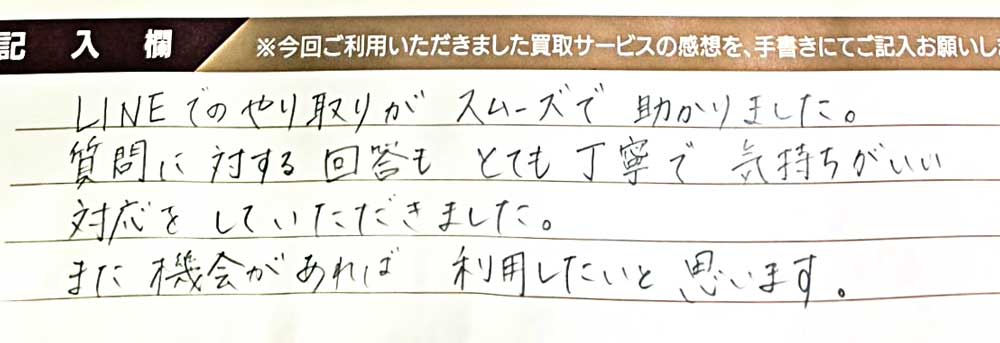 記入欄 ※今回ご利用いただきました買取サービスの感想を、手書きにてご記入お願いし
LINEでのやり取りが スムーズで 助かりました。
質問に 対する 回答も とても 丁寧で 気持ちがいい
対応を していただきました。
また 機会があれば 利用したいと 思います。